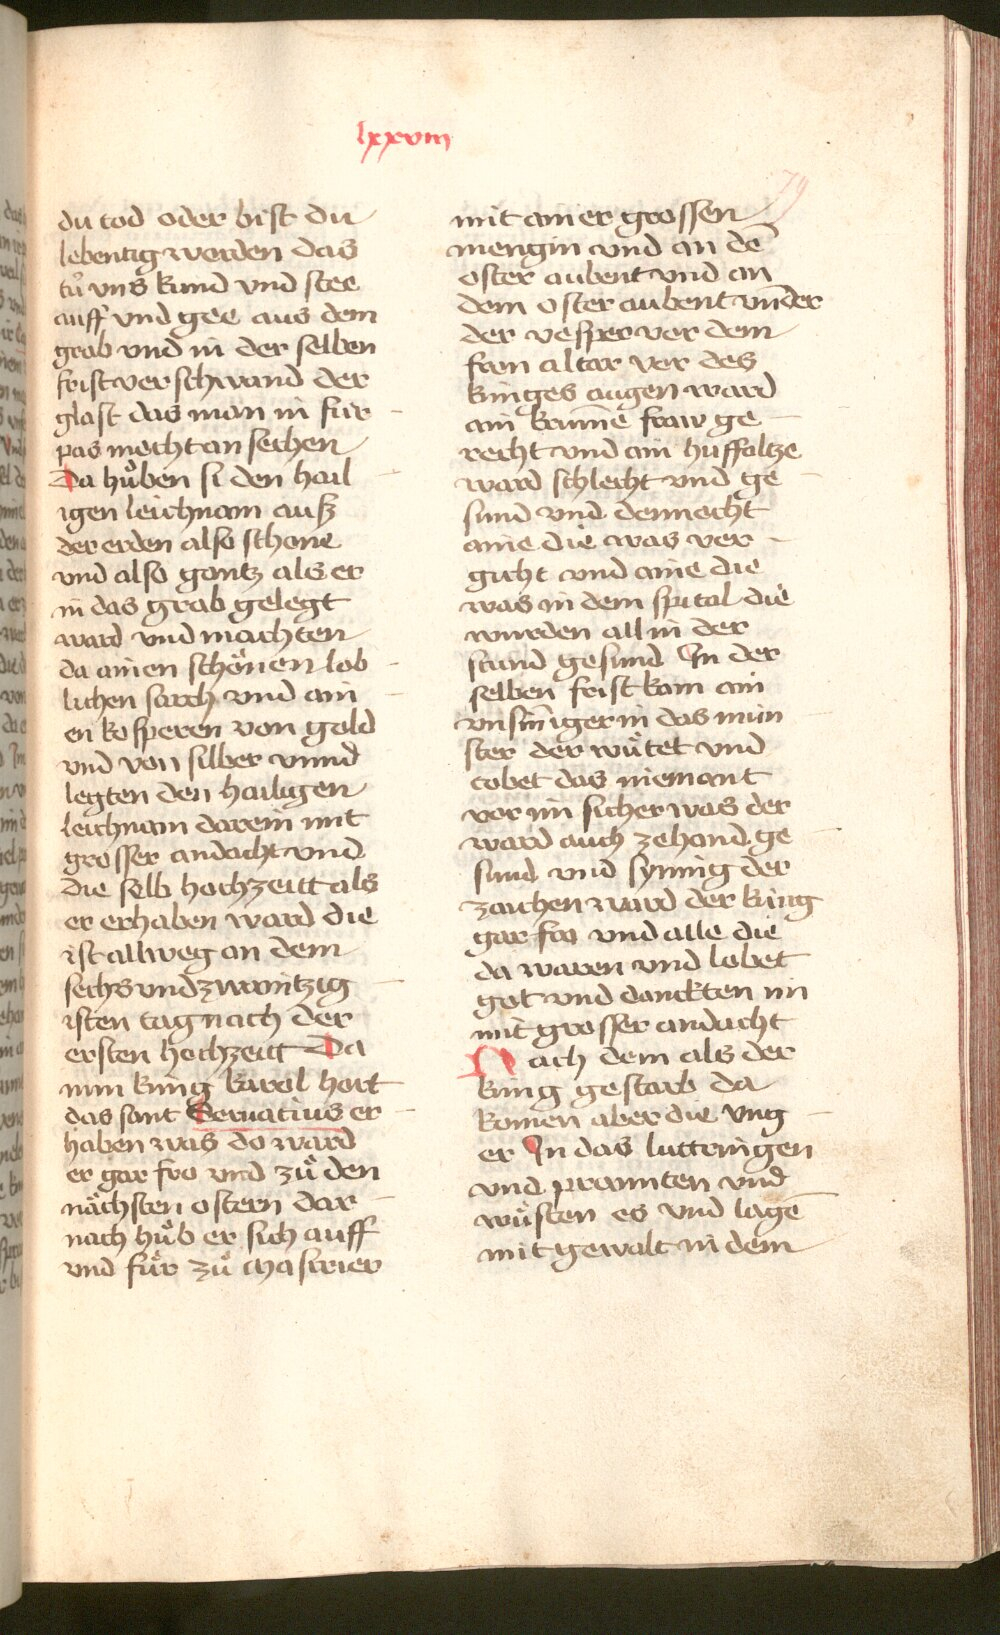 lxxviii
79
du tod oder bist du
lebentig werden das
tuͦ vns kund vnd stee
auff vnd gee aus dem
grab vnd in der selben
frist verschwand der
glast das man in für
pas mecht an sechen
Da huͦben si den hail
igen leichnam auß
der erden also schone
vnd also gantz als er
in das grab gelegt
ward vnd machten
da ainen schönen lob
lichen sarch vnd ain
en kosperen von gold
vnd von silber vnnd
legten den hailigen
leichnam darein mit
grosser andacht vnd
die selb hochzeitt als
er erhaben ward die
ist allweg an dem
sechsvndzwaintzig
isten tag nach der
ersten hochzeitt Da
nun küng karol hort
das sant Seruatius er
haben was do ward
er gar fro vnd zuͦ den
nächsten ostern dar
nach huͦb er sich auff
vnd fuͦr zuͦ mastrier
mit ainer grossen
mengin vnd an dē
oster aubent vnd an
dem oster aubent vnder
der vesper vor dem
fron altar vor des
kinges augen ward
ain krume fraw ge
recht vnd ain huffaltze
ward schlecht vnd ge
sund vnd dennecht
aine die was ver
gicht vnd aine die
was in dem spital die
wurden all in der
stund gesund In der
selben frist kam ain
vnsiniger in das mün
ster der wuͦtet vnd
tobet das niemant
vor im sicher was der
ward auch zehand ge
sund vnd synnig der
zaichen ward der küng
gar fro vnd alle die
da waren vnd lobet
got vnd danckten im
mit grosser andacht
Nach dem als der
küng gestarb da
komen aber die vng
er In das luttringen
vnd prannten vnd
wuͦsten es vnd lagē
mit gewalt in dem